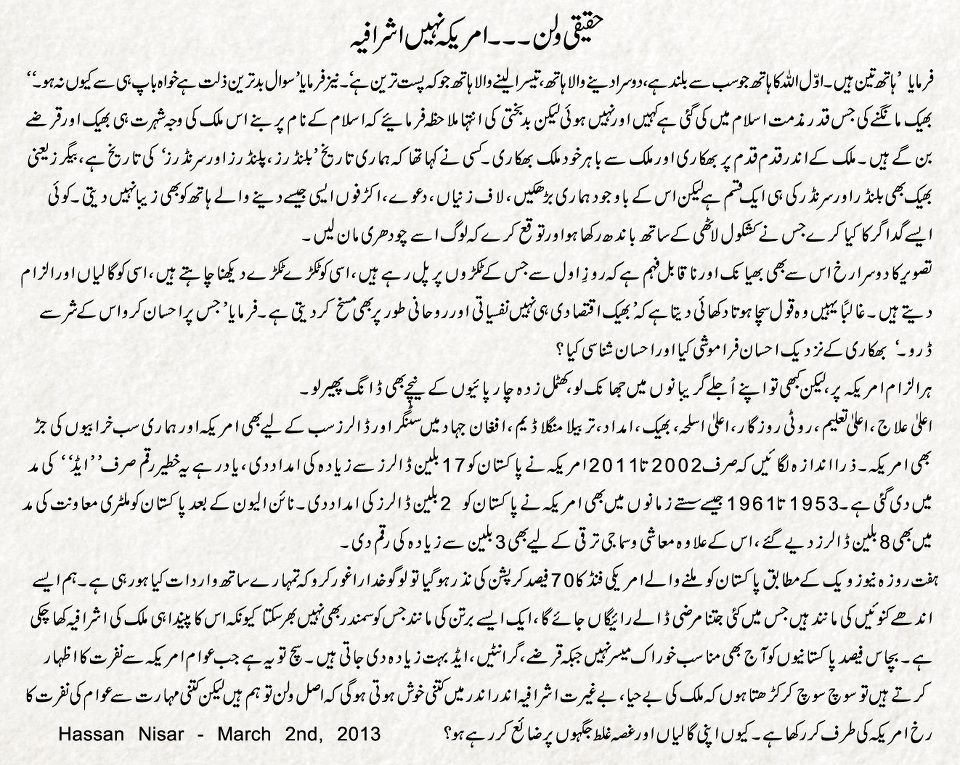 حقیقی ولن ۔۔۔ امریکہ نہیں اشرافیہ
فرمایا ’ہاتھ تین ہیں۔ اوّل اللہ کا ہاتھ جو سب سے بلند ہے، دوسرا دینے والا ہاتھ، تیسرا لینے والا ہاتھ جو کہ پست ترین ہے‘۔ نیز فرمایا ’سوال بدترین ذلت ہے خواہ باپ ہی سے کیوں نہ ہو۔‘‘
بھیک مانگنے کی جس قدر مذمت اسلام میں کی گئی ہے کہیں اور نہیں ہوئی لیکن بدبختی کی انتہا ملاحظہ فرمائیے کہ اسلام کے نام پر بنے اس ملک کی وجہ شہرت ہی بھیک اور قرضے
بن گے ہیں۔ ملک کے اندر قدم قدم پر بھکاری اور ملک سے باہر خود ملک بھکاری۔ کسی نے کہا تھا کہ ہماری تاریخ ’بلنڈرز، پلنڈرز اور سرنڈرز‘ کی تاریخ ہے، بیگرز یعنی
بھیک بھی بلنڈر اور سرنڈر کی ہی ایک قسم ہے لیکن اس کے باوجود ہماری بڑھکیں، لاف زنیاں، دعوے، اکڑفوں ایسی جیسے دینے والے ہاتھ کو بھی زیبا نہیں دیتی۔ کوئی
ایسے گداگر کا کیا کرے جس نے کشکول لاٹھی کے ساتھ باندھ رکھا ہو اور توقع کرے کہ لوگ اسے چودھری مان لیں۔
تصویر کا دوسرا رخ اس سے بھی بھیانک اور ناقابل فہم ہے کہ روزِ اول سے جس کے ٹکڑوں پر پل رہے ہیں، اسی کو ٹکڑے ٹکڑے دیکھنا چاہتے ہیں، اسی کو گالیاں اور الزام
دیتے ہیں۔ غالباً یہیں وہ قول سچا ہوتا دکھائی دیتا ہے کہ ’بھیک اقتصادی ہی نہیں نفسیاتی اور روحانی طور پر بھی مسخ کر دیتی ہے۔ فرمایا ’جس پر احسان کرو اس کے شر سے
ڈرو۔‘ بھکاری کے نزدیک احسان فراموشی کیا اور احسان شناسی کیا؟
ہر الزام امریکہ پر، لیکن کبھی تو اپنے اُجلے گریبانوں میں جھانک لو، کھٹل زدہ چارپائیوں کے نیچے بھی ڈانگ پھیر لو۔
اعلیٰ علاج، اعلیٰ تعلیم، روٹی روزگار، اعلیٰ اسلحہ، بھیک، امداد، تربیلا منگلا ڈیم، افغان جہاد میں سٹنگر اور ڈالرز سب کے لیے بھی امریکہ اور ہماری سب خرابیوں کی جڑ
بھی امریکہ۔ ذرا اندازہ لگائیں کہ صرف 2002 تا 2011 امریکہ نے پاکستان کو 17 بلین ڈالرز سے زیادہ کی امداد دی، یاد رہے یہ خطیر رقم صرف ’’ایڈ‘‘ کی مد
میں دی گئی ہے۔ 1953 تا 1961 جیسے سستے زمانوں میں بھی امریکہ نے پاکستان کو 2 بلین ڈالرز کی امداد دی۔ نائن الیون کے بعد پاکستان کو ملٹری معاونت کی مد
میں بھی 8 بلین ڈالرز دیے گئے، اس کے علاوہ معاشی و سماجی ترقی کے لیے بھی 3 بلین سے زیادہ کی رقم دی۔
ہفت روزہ نیوز ویک کے مطابق پاکستان کو ملنے والے امریکی فنڈ کا 70 فیصد کرپشن کی نذر ہو گیا تو لوگو خدارا غور کرو کہ تمہارے ساتھ واردات کیا ہو رہی ہے۔ ہم ایسے
اندھے کنوئیں کی مانند ہیں جس میں کئی جتنا مرضی ڈالے رائیگاں جائے گا، ایک ایسے برتن کی مانند جس کو سمندر بھی نہیں بھر سکتا کیونکہ اس کا پیندا ہی ملک کی اشرافیہ کھا چکی
ہے۔ پچاس فیصد پاکستانیوں کو آج بھی مناسب خوراک میسر نہیں جبکہ قرضے، گرانٹیں، ایڈ بہت زیادہ دی جاتی ہیں۔ سچ تو یہ ہے جب عوام امریکہ سے نفرت کا اظہار
کرتے ہیں تو سوچ سوچ کر کڑھتا ہوں کہ ملک کی بے حیا، بے غیرت اشرافیہ اندر اندر میں کتنی خوش ہوتی ہو گی کہ اصل ولن تو ہم ہیں لیکن کتنی مہارت سے عوام کی نفرت کا
رخ امریکہ کی طرف کر رکھا ہے۔ کیوں اپنی گالیاں اور غصہ غلط جگہوں پر ضائع کر رہے ہو؟ Hassan Nisar - March 2nd, 2013